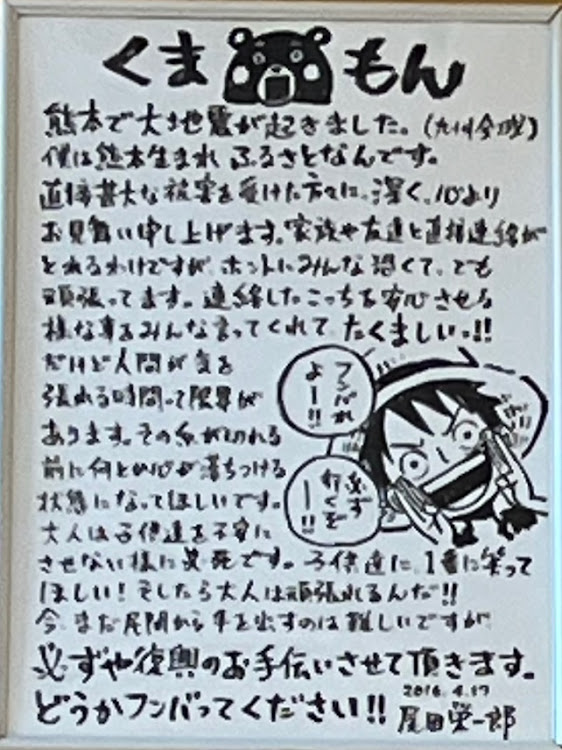 くまもん
熊本で大地震が起きました。(九州全域)
僕は熊本生まれ ふるさとなんです。
直接甚大な被害を受けた方々に、深く、心より
お見舞い申し上げます。家族や友達と直接連絡が
とれるわけですが、ホントにみんな恐くて、でも
頑張ってます。連絡したこっちを安心させる
様な事をみんな言ってくれて たくましいっ!!
だけど人間が気を
張れる時間って限界が
あります。その糸が切れる
前に何とか心が落ちつける
状態になってほしいです。
大人は子供達を不安に
させない様に必死です。子供達に、1番に笑って
ほしい!そしたら大人は頑張れるんだ!!
今、まだ民間から手を出すのは難しいですが
必ずや復興のお手伝いさせて頂きます。
どうかフンバってください!!
フンバれ
よー!!
必ず
行くぞ
ー!!
2016.4.17
尾田栄一郎